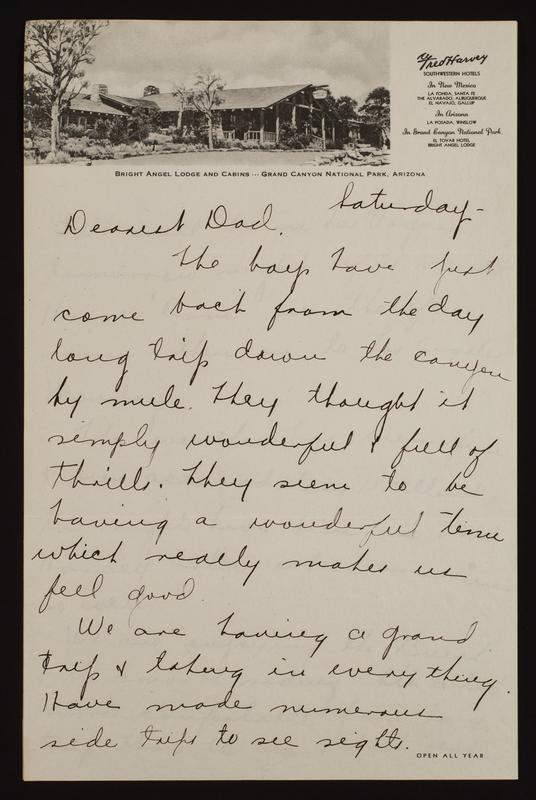 Fred Harvey
SOUTHWESTERN HOTELS
In New Mexico
LA FONDA, SANTA FE
THE ALVARADO, ALBUQUERQUE
EL NAVAJO, GALLUP
In Arizona
LA POSADA, WINSLOW
In Grand Canyon National Park
EL TOVAR HOTEL
BRIGHT ANGEL LODGE
BRIGHT ANGEL LODGE AND CABINS ··· GRAND CANYON NATIONAL PARK, ARIZONA
Saturday-
Dearest Dad.
The boys have just
come back from the day
long trip down the canyon
by mule. They thought it
simply wonderful & full of
thrills. They seem to be
having a wonderful time
which really makes us
feel good.
We are having a grand
trip & taking in everything.
Have made numerous
side trips to see sights.
OPEN ALL YEAR